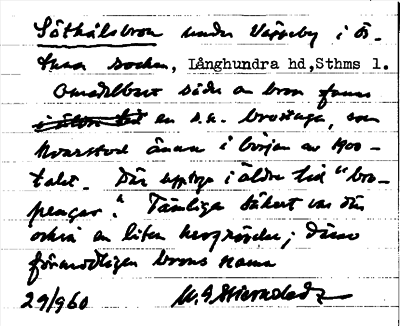 Såthålsbron under Väppeby i Ö-
tuna socken, Långhundra hd, Sthms l.
Omedelbart söder om bron fanns
i äldre tid en s.k. brostuga, som
kvarstod ännu i början av 1900-
talet. Där upptogs i äldre tid "bro-
pengar". Tämligen säkert var där
också en liten krogrörelse; därav
förmodligen brons namn
29/9 60